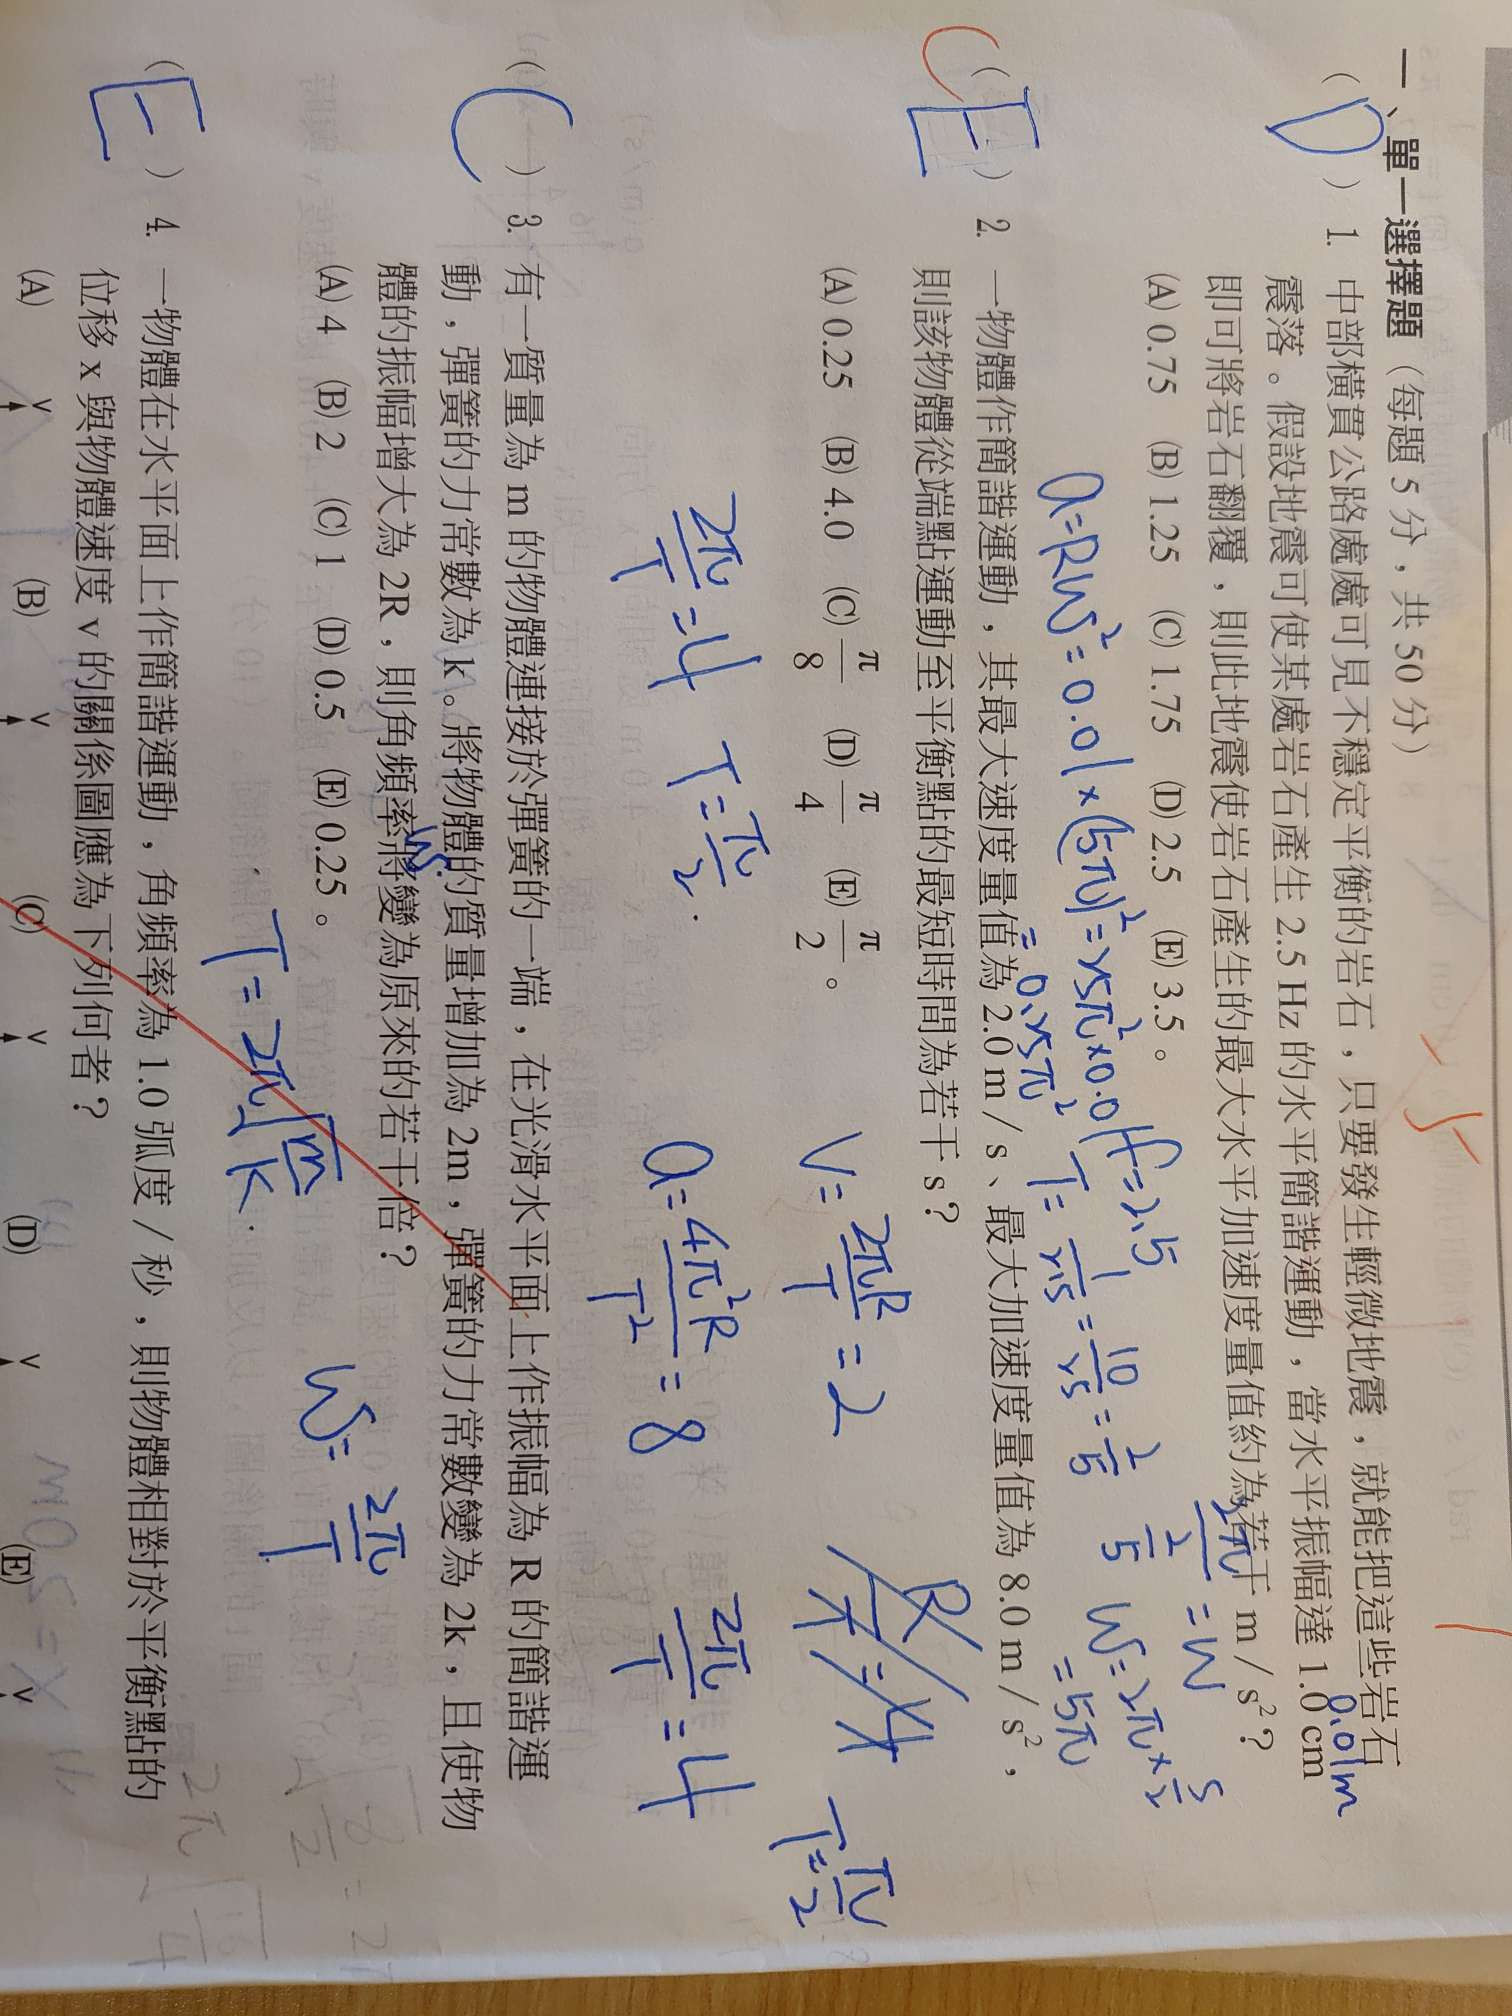 一、單一選擇題（每題 5 分，共 50 分）
( D ) 1. 中部橫貫公路處處可見不穩定平衡的岩石，只要發生輕微地震，就能把這些岩石
震落。假設地震可使某處岩石產生 2.5 Hz 的水平簡諧運動，當水平振幅達 1.0 cm
0.01m
即可將岩石翻覆，則此地震使岩石產生的最大水平加速度量值約為若干 m／s²？
(A) 0.75 (B) 1.25 (C) 1.75 (D) 2.5 (E) 3.5。
f=2.5
a=Rω²=0.01×(5π)²=25π²×0.01
=0.25π²
T=1/2.5=10/25=2/5
2/5 ω=2π×5/2
=5π
C
( E ) 2. 一物體作簡諧運動，其最大速度量值為 2.0 m／s、最大加速度量值為 8.0 m／s²，
則該物體從端點運動至平衡點的最短時間為若干 s？
(A) 0.25 (B) 4.0 (C) π/8 (D) π/4 (E) π/2。
V=2πR/T=2
T=π/2
2π/T=4 T=π/2.
a=4π²R/T²=8 2π/T=4
( C ) 3. 有一質量為 m 的物體連接於彈簧的一端，在光滑水平面上作振幅為 R 的簡諧運
動，彈簧的力常數為 k。將物體的質量增加為 2m，彈簧的力常數變為 2k，且使物
體的振幅增大為 2R，則角頻率將變為原來的若干倍？
(A) 4 (B) 2 (C) 1 (D) 0.5 (E) 0.25。
T=2π√m/k. ω=2π/T
( E ) 4. 一物體在水平面上作簡諧運動，角頻率為 1.0 弧度／秒，則物體相對於平衡點的
位移 x 與物體速度 v 的關係圖應為下列何者？
(A) v (B) v (C) v (D) v (E) v